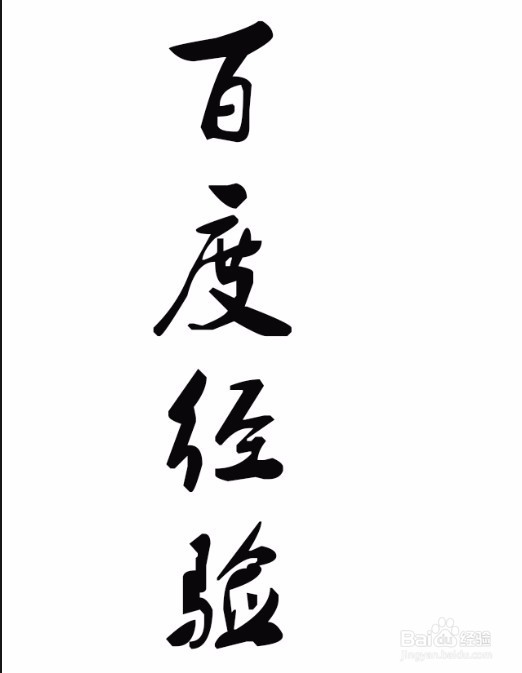 百度经验
Baidu经验
jingyan.baidu.com